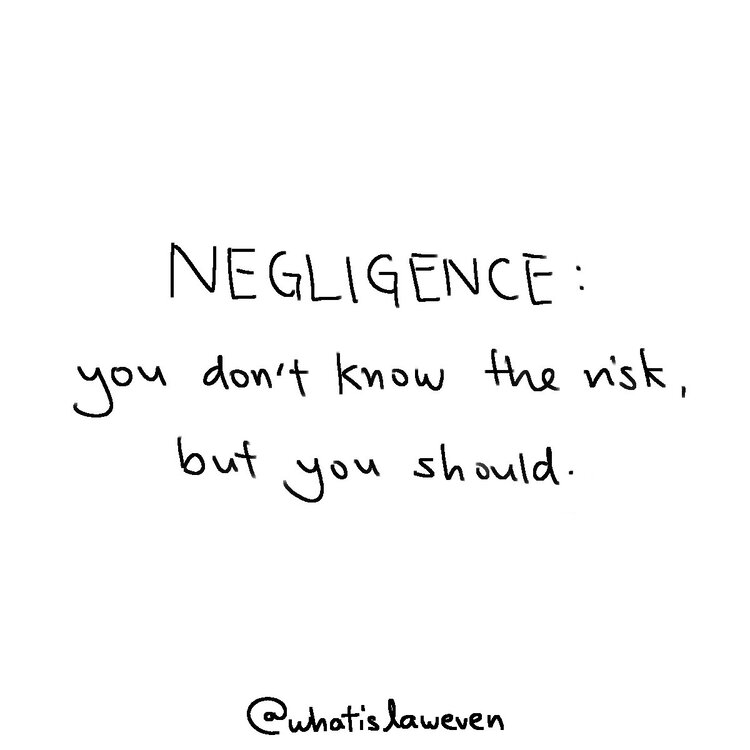 NEGLIGENCE:
you don't know the risk,
but you should.
@whatislaweven